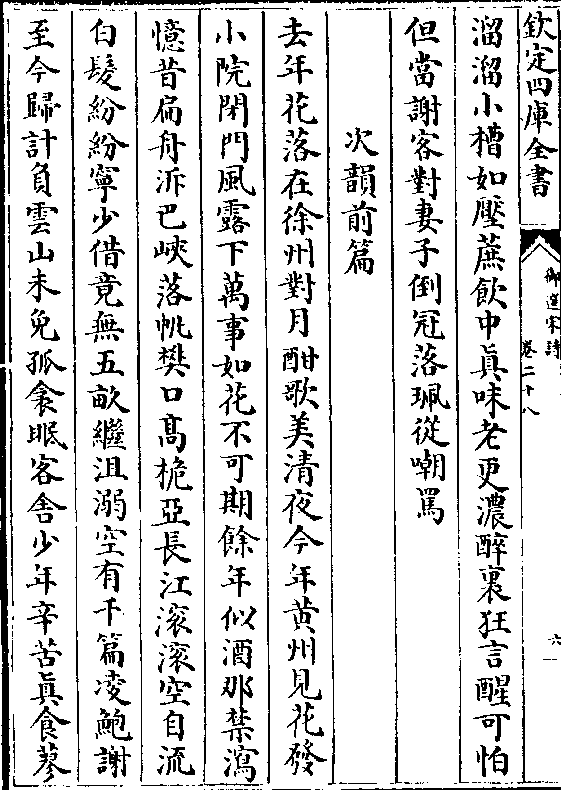 欽定四庫全書
御選宋詩
卷二十八
六
溜溜小槽如壓蔗飲中眞味老更濃醉裏狂言醒可怕
但當謝客對妻子倒冠落珮從嘲罵
次韻前篇
去年花落在徐州對月酣歌美清夜今年黄州見花發
小院閉門風露下萬事如花不可期餘年似酒那禁瀉
憶昔扁舟泝巴峽落帆樊口髙桅亞長江滚滚空自流
白髮紛紛寧少借竟無五畝繼沮溺空有千篇凌鮑謝
至今歸計負雲山未免孤衾眠客舎少年辛苦眞食蓼